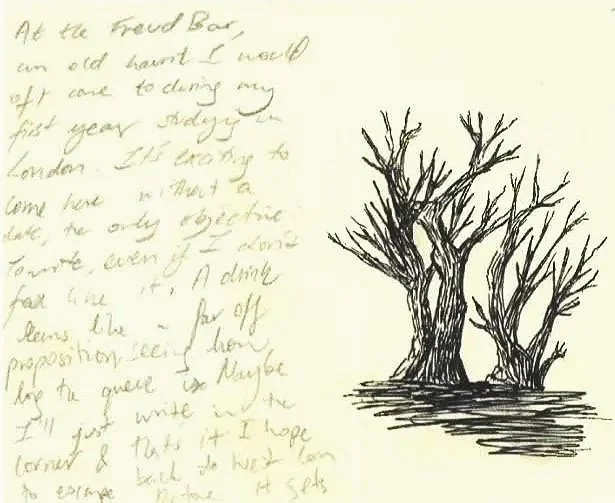 At the Freud Bar,
an old haunt I would
oft come to during my
first year studying in
London. It's exciting to
come here without a
date, the only objective
to write, even if I don't
feel like it. A drink
seems like a far off
proposition seeing how
long the queue is. Maybe
I'll just write in the
corner & thats it I hope
to escape back to West Lon
before it gets